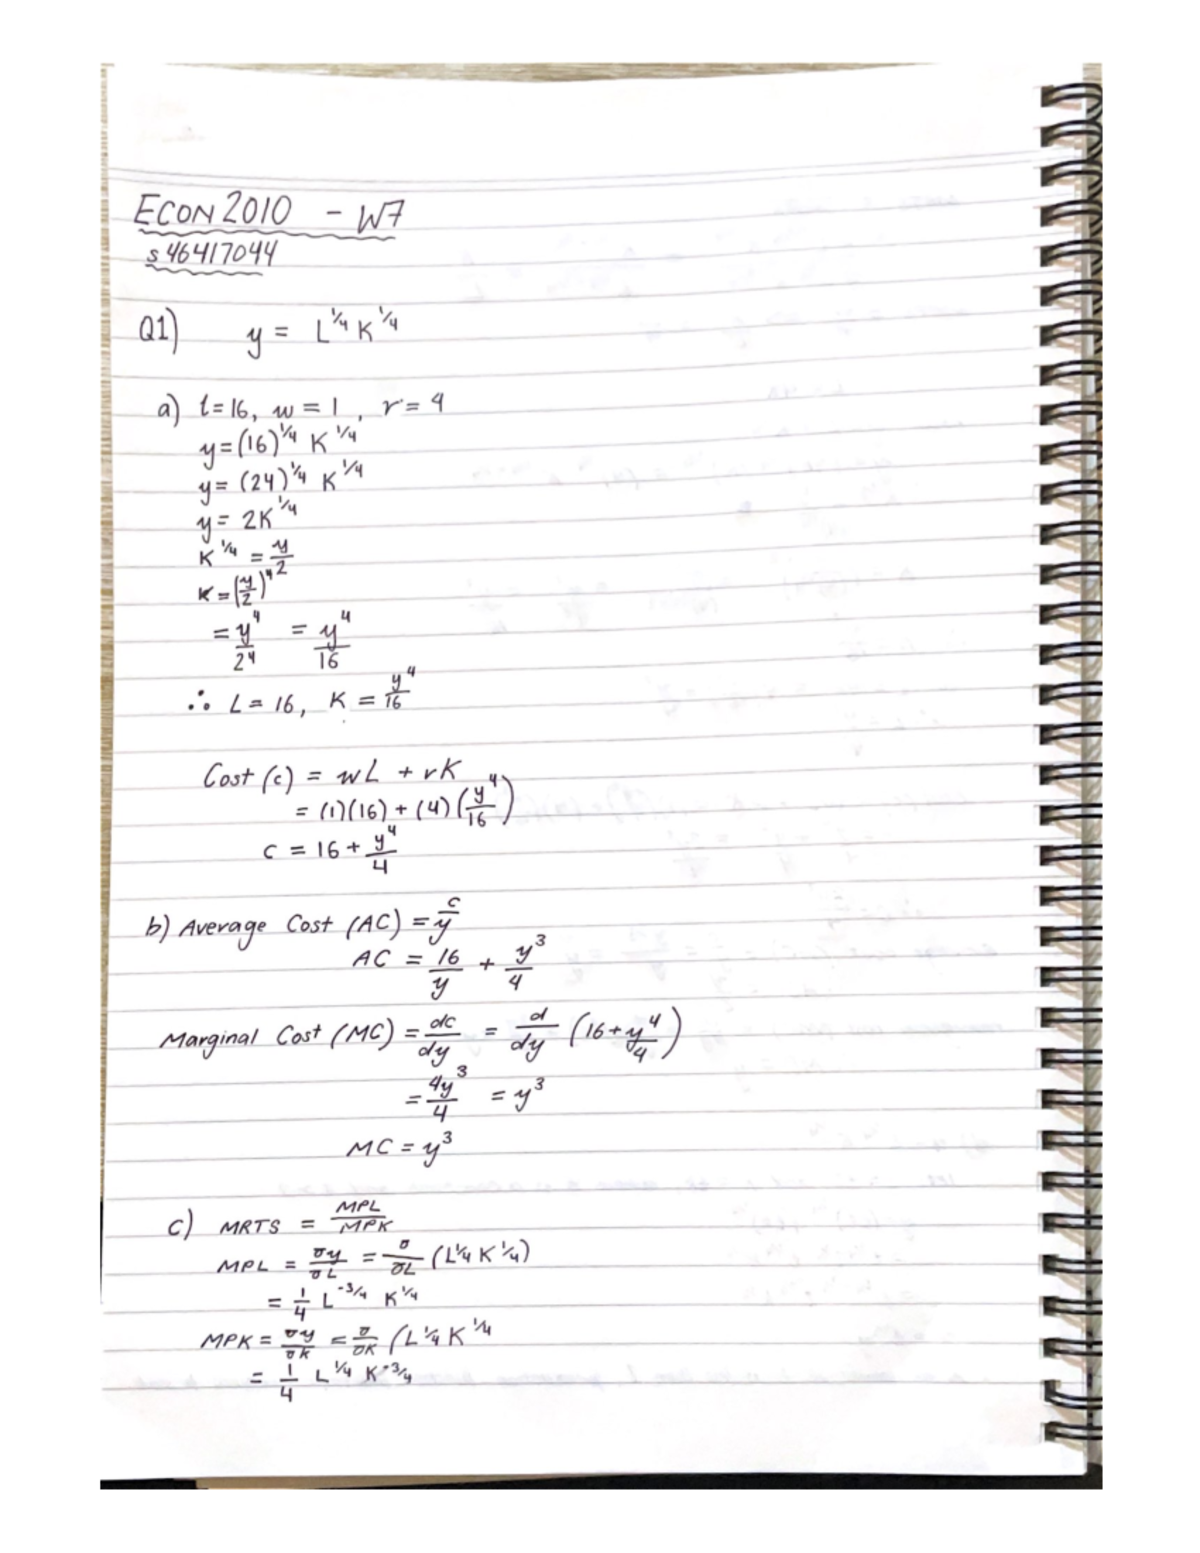 ECON 2010 - W7
s46417044
Q1) y = L^1/4 K^1/4
a) l=16, w = 1, r = 4
y = (16)^1/4 K^1/4
y = (24)^1/4 K^1/4
y = 2K^1/4
K^1/4 = y/2
K = (y/2)^4
= y^4/2^4 = y^4/16
∴ L = 16, K = y^4/16
Cost (c) = wL + rK
= (1)(16) + (4)(y^4/16)
c = 16 + y^4/4
b) Average Cost (AC) = c/y
AC = 16/y + y^3/4
Marginal Cost (MC) = dc/dy = d/dy (16 + y^4/4)
= 4y^3/4 = y^3
MC = y^3
c) MRTS = MPL/MPK
MPL = σy/σL = σ/σL (L^1/4 K^1/4)
= 1/4 L^-3/4 K^1/4
MPK = σy/σK = σ/σK (L^1/4 K^1/4
= 1/4 L^1/4 K^-3/4